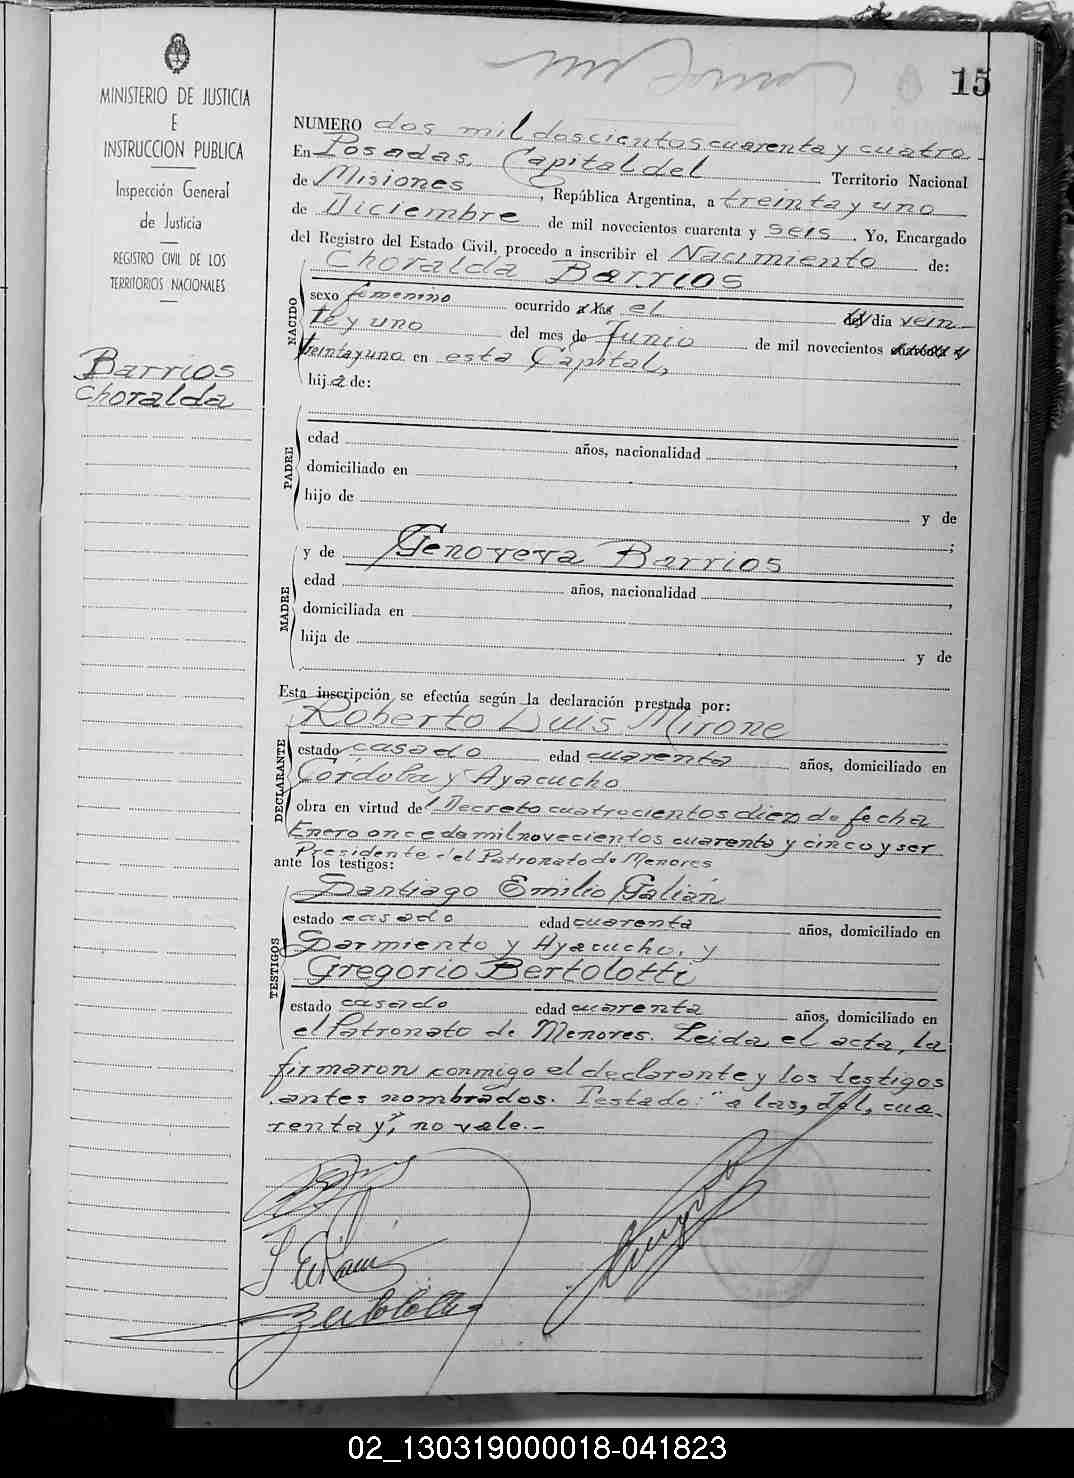 15
MINISTERIO DE JUSTICIA
E
INSTRUCCION PUBLICA
Inspección General
de Justicia
REGISTRO CIVIL DE LOS
TERRITORIOS NACIONALES
Barrios
Choralda
NUMERO dos mil doscientos cuarenta y cuatro
En Posadas, Capital del Territorio Nacional
de Misiones, República Argentina, a treinta y uno
de Diciembre de mil novecientos cuarenta y seis. Yo, Encargado
del Registro del Estado Civil, procedo a inscribir el Nacimiento de:
NACIDO
Choralda Barrios
sexo femenino ocurrido a las el del día vein-
te y uno del mes de Junio de mil novecientos cuarenta y
treinta y uno en esta Capital,
hija de:
PADRE
edad años, nacionalidad ,
domiciliado en
hijo de y de
;
MADRE
y de Genoveva Barrios
edad años, nacionalidad ,
domiciliada en
hija de y de
Esta inscripción se efectúa según la declaración prestada por:
DECLARANTE
Roberto Luis Mirone
estado casado edad cuarenta años, domiciliado en
Córdoba y Ayacucho
obra en virtud del Decreto cuatrocientos diez de fecha
Enero once de mil novecientos cuarenta y cinco y ser
Presidente del Patronato de Menores
ante los testigos:
TESTIGOS
Santiago Emilio Galián
estado casado edad cuarenta años, domiciliado en
Sarmiento y Ayacucho, y
Gregorio Bertolotti
estado casado edad cuarenta años, domiciliado en
el Patronato de Menores. Leida el acta, la
firmaron conmigo el declarante y los testigos
antes nombrados. Testado: "a las, del, cua-
renta y", no vale.-
02_130319000018-041823